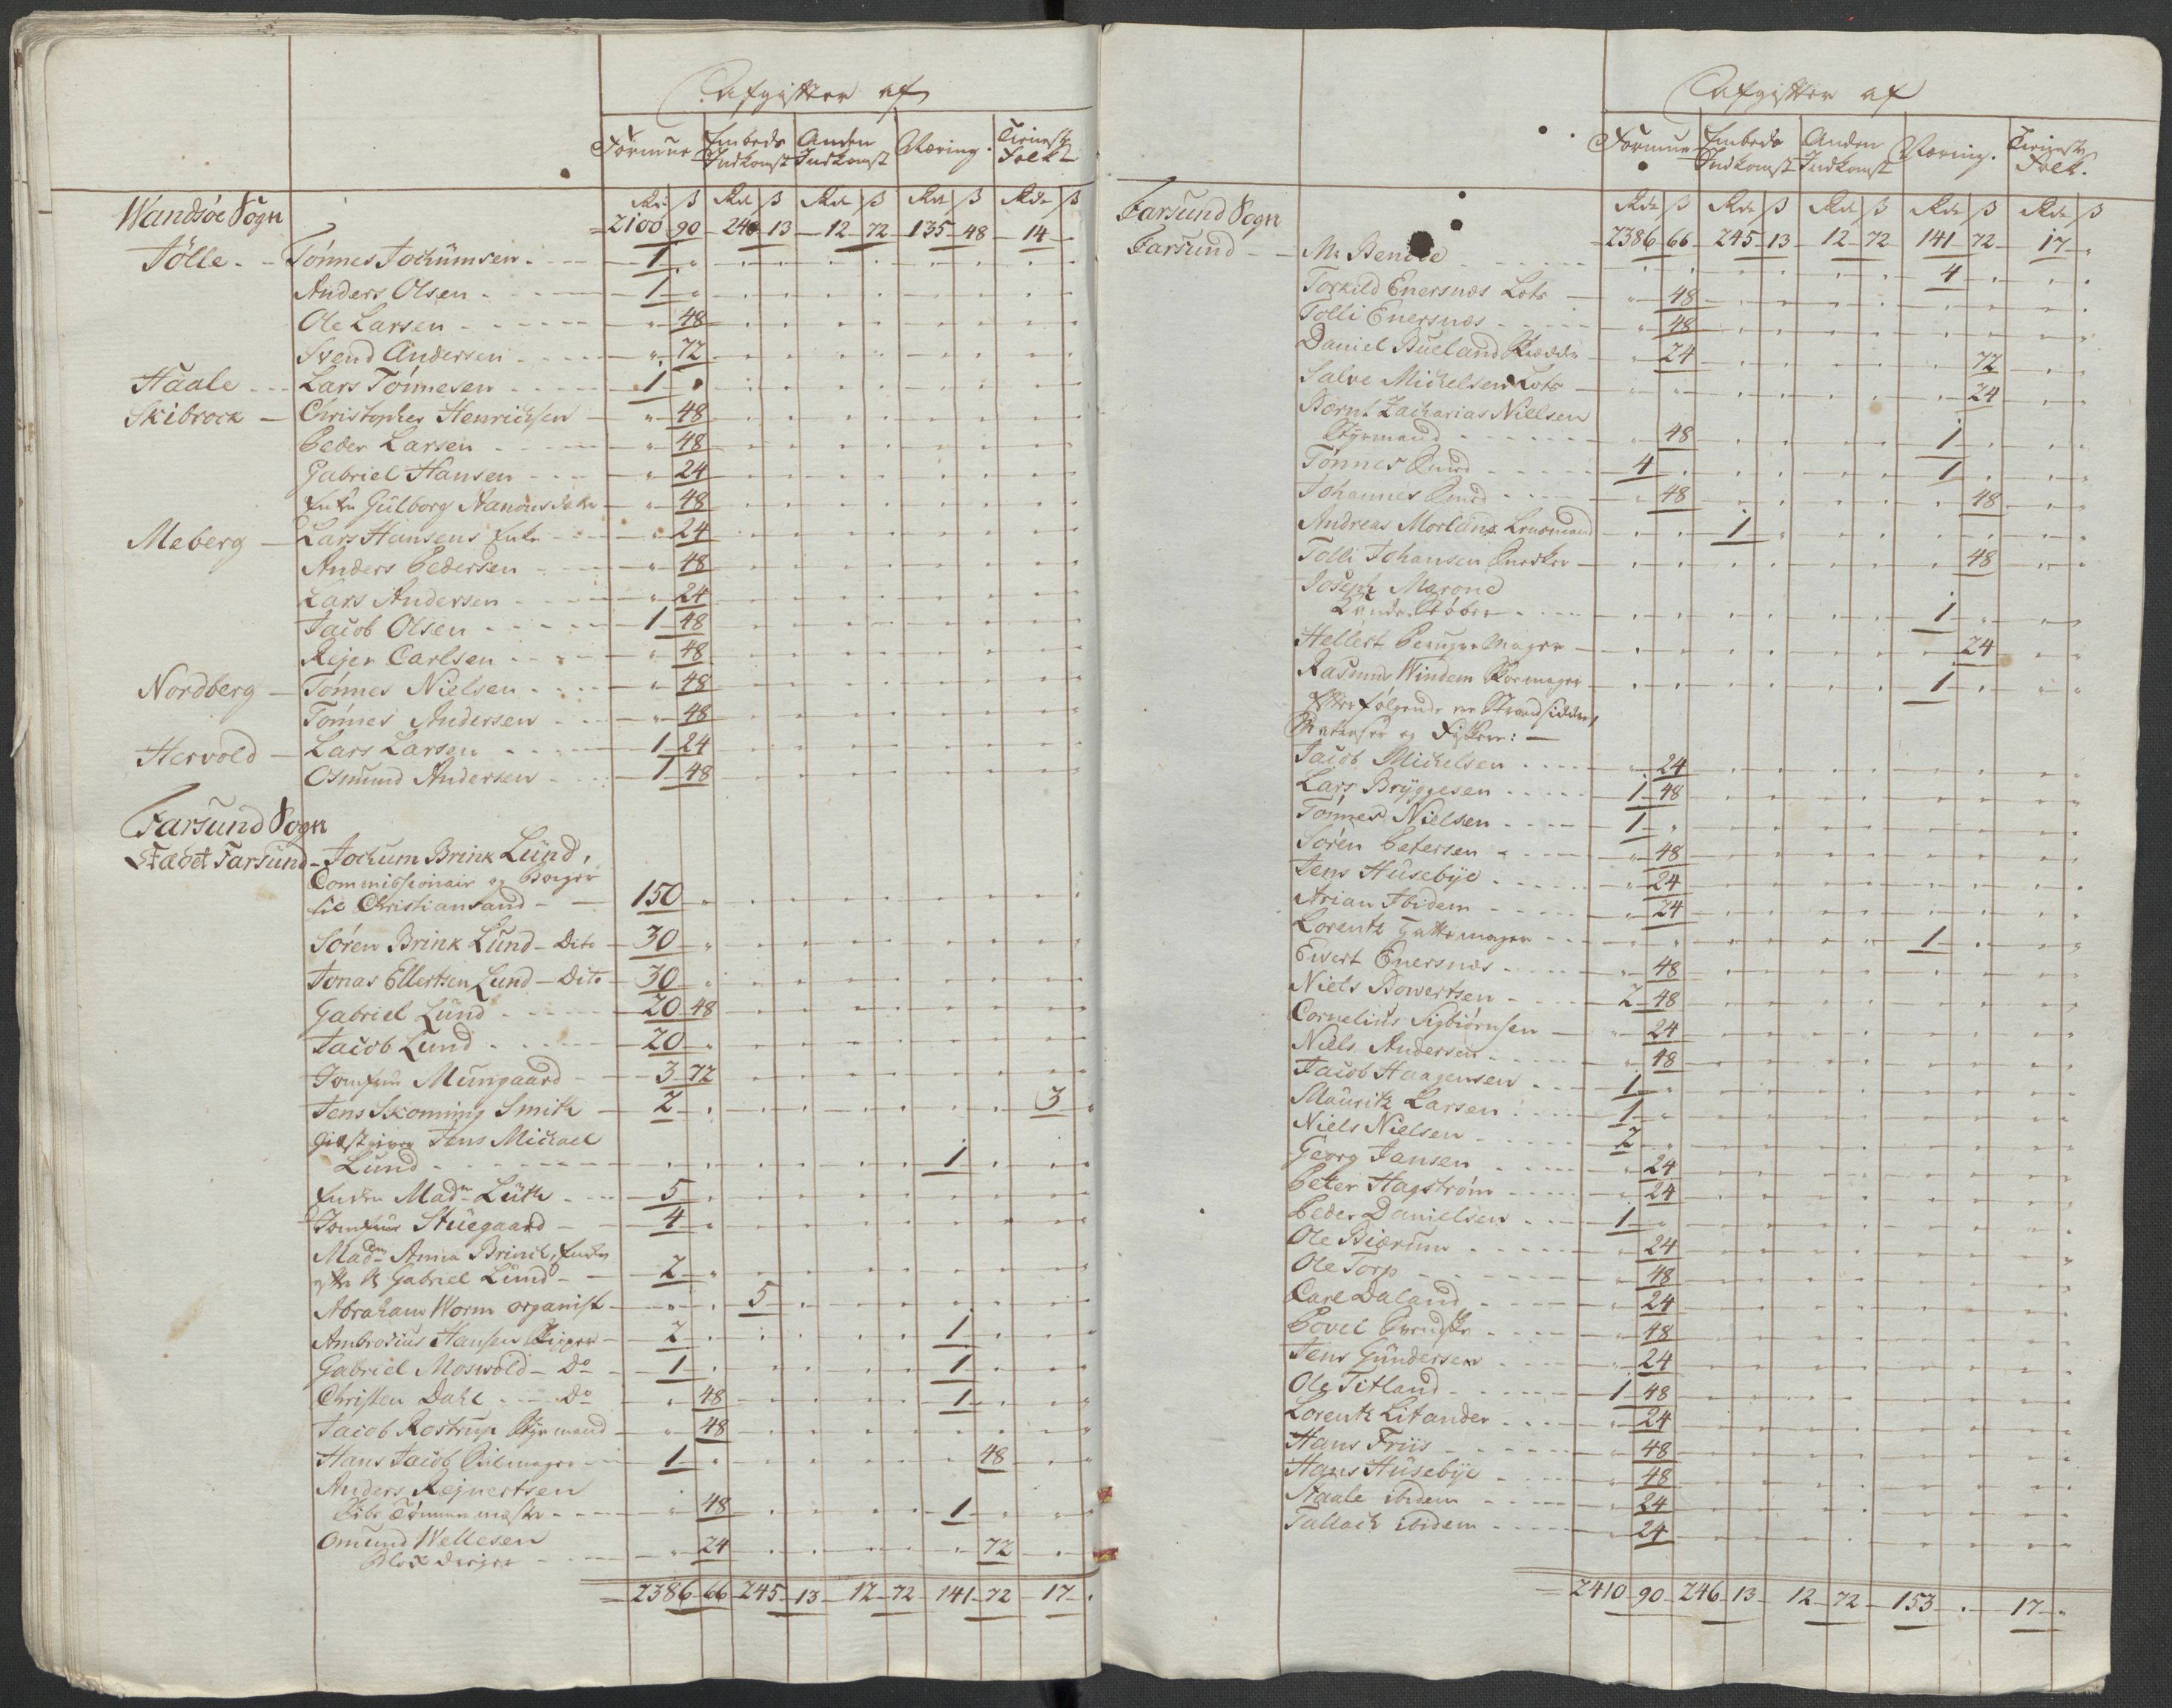 Afgifter af
Formue Embeds Indkomst Anden Indkomst Næring. Tieneste Folk
Rd ß Rd ß Rd ß Rd ß Rd ß
Wandsøe Sogn 2100 90 240 13 12 72 135 48 14
Jølle. Tónnes Jochumsen. 1
Anders Olsen 1
Ole Larsen 48
Svend Andersen 72
Haale Lars Tónnesen 1
Skibrock Christopher Henrichsen 48
Peder Larsen 48
Gabriel Hansen 24
Enke Gulborg 48
Meberg Lars Hansens Enke 24
Anders Pedersen 48
Lars Andersen 24
Jacob Olsen 1 48
Rejer Carlsen 48
Nordberg Tónnes Nielsen 48
Tónnes Andersen 48
Hervold Lars Larsen 1 24
Osmund Andersen 1 48
Farsund Sogn
Stædet Farsund Jochum Brink Lund,
Commissionair og Borger
til Christiansand 150
Søren Brink Lund Dito 30
Jonas Ellertsen Lund Dito 30
Gabriel Lund 20 48
Jacob Lund 20
Jomfrue Mungaard 3 72
Jens Skoming Smith 2 3
Giæstgiver Jens Michael
Lund 1
Enken Madm Lüth 5
Jomfrue Stuegaard 4
Madm Anna Brinck, Enke
efter Gabriel Lund 2
Abraham Worm organist 5
Ambrosius Hansen Skipper 2 1
Gabriel Moswold Do 1 1
Christen Dahl Do 48 1
Jacob Rostrup Styrmand 48
Hans Jacob Seilmager 1 48
Anders Rejnertsen
Skibs Tømmermester 48 1
Omund Wellesen
Blokdreyer 24 72
2386 66 245 13 12 72 141 72 17
Afgifter af
Formue Embeds Indkomst Anden Indkomst Næring. Tieneste Folk.
Rd ß Rd ß Rd ß Rd ß Rd ß
Farsund Sogn 2386 66 245 13 12 72 141 72 17
Farsund Mr 4
Torkild Enersnæs Lots 48
Tolli Enersnæs 48
Daniel Bueland Skredder 24 72
Salve Michelsen Lots 24
Bernt Zacharias Nielsen
Styrmand 48 1
Tónnes 4 1
Johannes 48 48
Andreas Morland Lensmand 1
Tolli Johansen Snedker 48
Joseph Marone
Kandestøber 1
Hellert Peruqvemager 24
Rasmus Windem Skoemager 1
Efterfølgende ere Strandsiddere,
Matroser og Fiskere:
Jacob Michelsen 24
Lars Bryggesen 1 48
Tónnes Nielsen 1
Søren Petersen 48
Jens Husebye 24
Arian Ibidem 24
Lorentz Hattemager 1
Evert Enersnæs 48
Niels Bowertsen 2 48
Cornelius Sigbiørnsen 24
Niels Andersen 48
Jacob Haagensen 1
Mauritz Larsen 1
Niels Nielsen 2
Georg Jansen 24
Peter Hagstrøm 24
Peder Danielsen 1
Ole Biærum 24
Ole Torp 48
Carl Daland 24
Povel 48
Jens Gundersen 24
Ole Titland 1 48
Lorentz Litander 24
Hans Friis 48
Hans Husebye 48
Staale ibidem 24
Tallach ibidem 24
2410 90 246 13 12 72 153 17